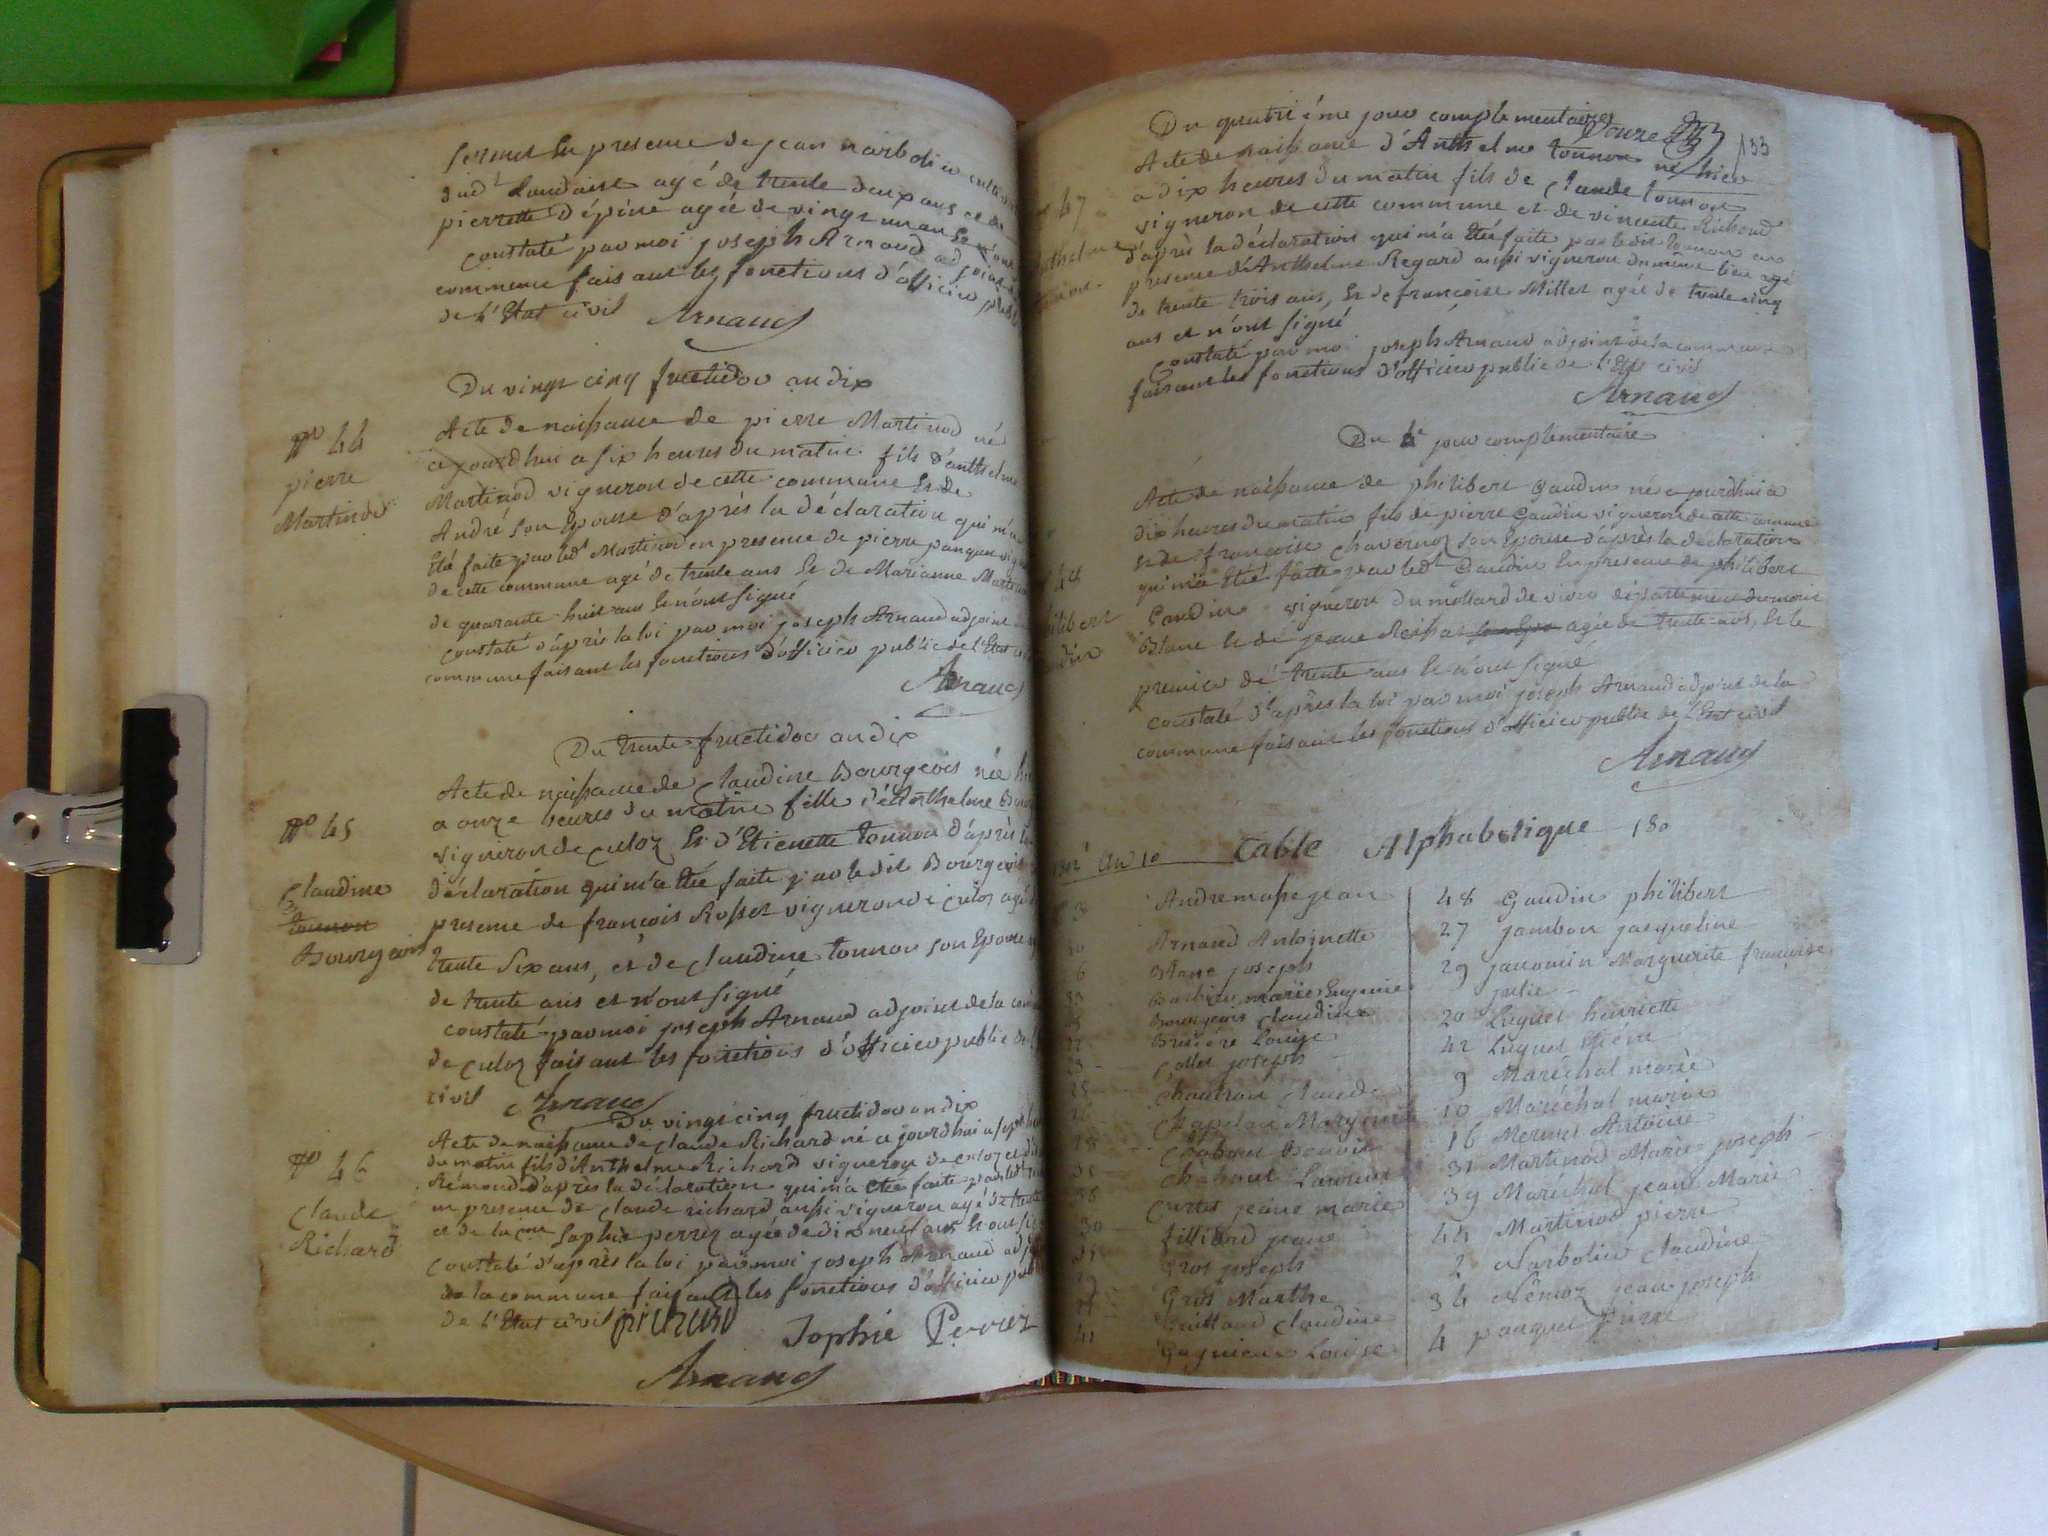 fermes En presence de jean narbolin
dud.t Landaise agé de trente deux ans et de
pierrette d'épine agée de vingt un an Et n'ont
constaté par moi joseph Arnaud adjoint
commune faisant les fonctions d'officier
de l'Etat civil Arnaud
Du vingt cinq fructidor an dix
No 44
pierre
Martinod
Acte de naissance de pierre Martinod né
ajourdhui a six heures du matin fils d'anthelme
Martinod vigneron de cette commune Et de
André son Epouse d'après la déclaration qui m'a
Eté faite par led.t Martinod en presence de pierre panquet
de cette commune agé de trente ans Et de Marianne
de quarante huit ans Et n'ont signé
constaté d'après la loi par moi joseph Arnaud adjoint
commune faisant les fonctions d'officier public de l'Etat
Arnaud
Du trente fructidor an dix
No 45
Claudine
tonnon
Bourgeois
Acte de naissance de Claudine Bourgeois née
a onze heures du matin fille d'Anthelme
vigneron de Culoz Et d'Etienette tonnon d'après
déclaration qui m'a Eté faite par le dit Bourgeois
presence de françois Rosset vigneron de Culoz agé
trente Six ans, et de Claudine tonnon son Epouse
de trente ans et n'ont signé
constaté par moi joseph Arnaud adjoint de la
de Culoz faisant les fonctions d'officier public de
civil Arnaud
Du vingt cinq fructidor an dix
No 46
Claude
Richard
Acte de naissance de Claude Richard né ajourdhui a sept
du matin fils d'Anthelme Richard vigneron de Culoz et
Rémond d'après la déclaration qui m'a Eté faite par led.t
en presence de Claude richard aussi vigneron agé de trente
et de la Sophie perrez agée de dix neuf ans Et ont
constaté d'après la loi par moi joseph Arnaud
de la commune faisant les fonctions d'officier
de l'Etat civil richard Sophie Perrez
Arnaud
Du quatrième jour complementaire
133
47
Acte de naissance d'Anthelme tonnon né hier
a dix heures du matin fils de Claude tonnon
vigneron de cette commune et de vincente Richard
d'après la déclaration qui m'a Eté faite par le dit tonnon en
presence d'Anthelme Regard aussi vigneron du même lieu agé
de trente trois ans, Et de françoise Millet agée de trente cinq
ans et n'ont signé
constaté par moi joseph Arnaud adjoint de la commune
faisant les fonctions d'officier public de l'Etat civil
Arnaud
Du jour complementaire
48
Acte de naissance de philibert Gaudin né ajourdhui a
dix heures du matin fils de pierre Gaudin vigneron de cette commune
et de françoise Chavernoz son Epouse d'après la déclaration
qui m'a Eté faite par led.t Gaudin En presence de philibert
Gaudin vigneron du mollard de vion département du mont
Blanc Et de jeane agée de trente ans, Et le
premier de trente ans Et n'ont signé
constaté d'après la loi par moi joseph Arnaud adjoint de la
commune faisant les fonctions d'officier public de l'Etat civil
Arnaud
An 10 table Alphabetique 180
Andremasse jean
Arnaud Antoinette
Blanc joseph
Barbier marie Eugenie
Bourgeois Claudine
Brisière Louise
Collet joseph
Chautron Claude
Chapelan Marguerite
Chaboud Benoit
Chahout Laurent
Curtet jeane marie
30 filliard jeane
Gros joseph
Gros Marthe
Guillaud Claudine
41 Gagnieux Louise
48 Gaudin philibert
27 jambon jacqueline
29 janomin Marguerite françoise
julie
20 Luquet henriette
42 Luquet
9 Maréchal marie
10 Maréchal marie
16 Mermet Antoine
31 Martinod Marie joseph
39 Maréchal jean Marie
44 Martinod pierre
2 Narbolin Claudine
34 Némoz jean joseph
4 panquet pierre